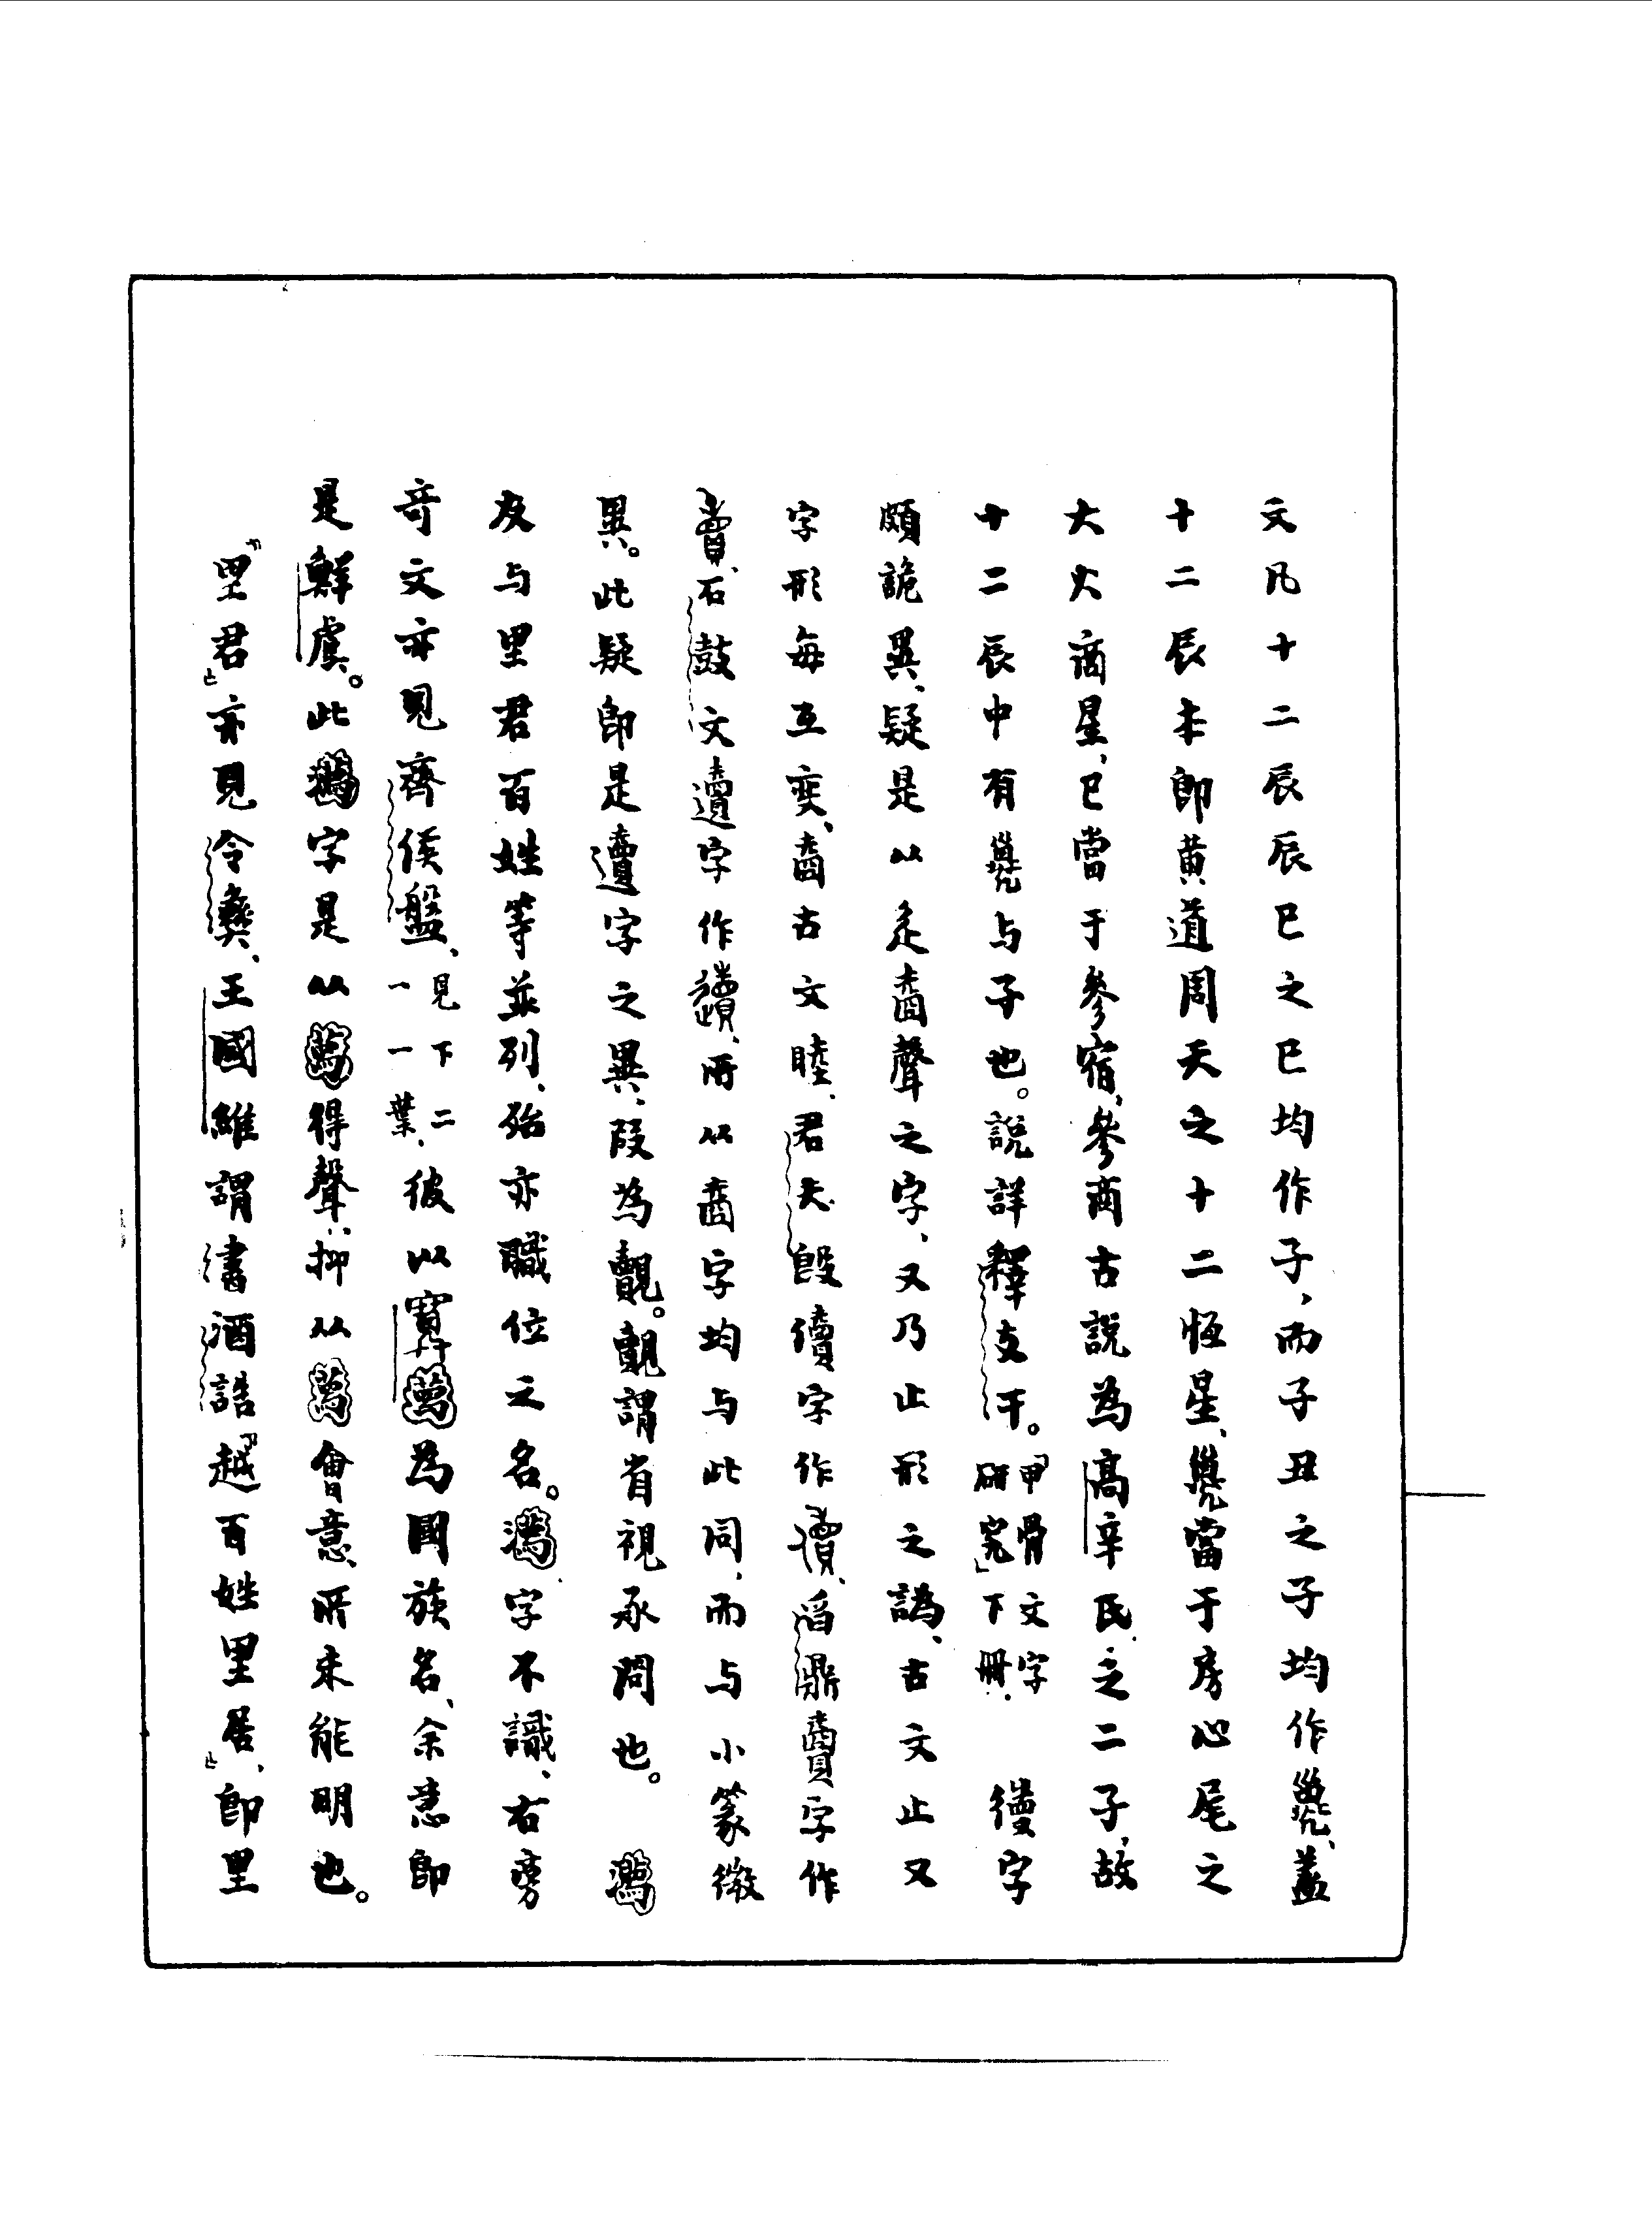 文凡十二辰辰巳之巳均作子，而子丑之子均作㜽、蓋
十二辰本即黃道周天之十二恆星、當于房心尾之
大火商星，巳當于參宿，參商古說為高辛氏之二子，故
十二辰中有与子也。說詳釋支干。「甲骨文字研究」下冊． 字
頗詭異、疑是从辵𠷎聲之字，又乃止形之譌、古文止又
字形每互変、𠷎古文睦．君夫𣪘儥字作、舀鼎賣字作
、石鼓文遺字作、所从𠷎字均与此同，而与小篆微
異。此疑即是遺字之異、叚為覿。覿謂省視承問也。
友与里君百姓等並列、殆亦職位之名。字不識、右旁
奇文亦見齊侯盤、見下二一一葉、彼以寶為國族名、余意即
是鮮虞。此字是从得聲，抑从會意、所未能明也。
「里君」亦見令彝、王國維謂書酒誥「越百姓里居」、即里